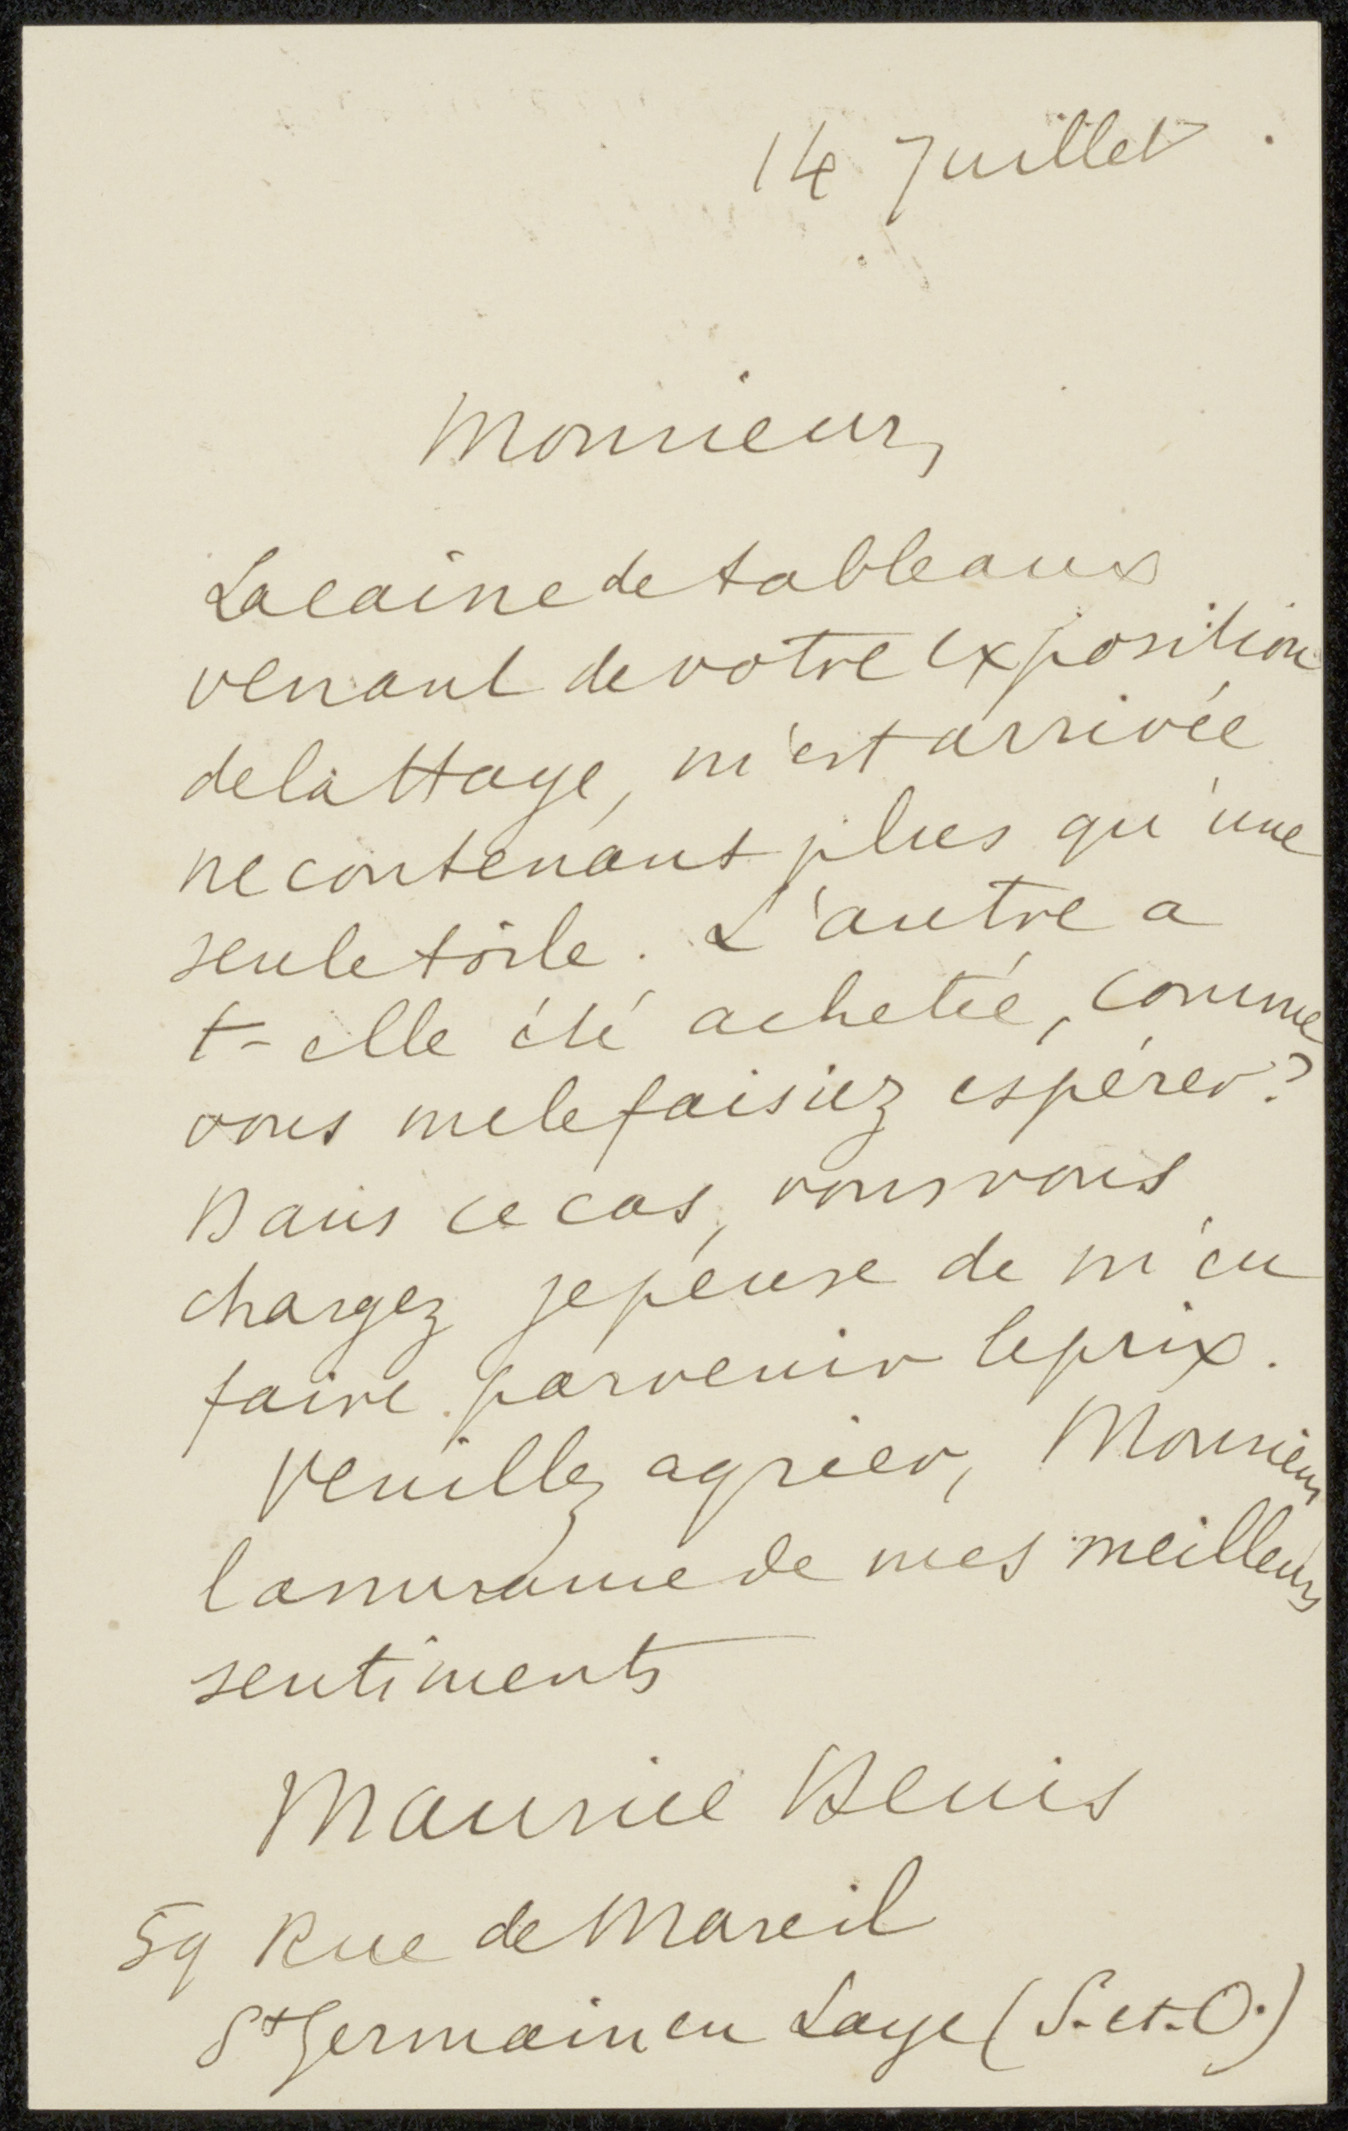 14 Juillet
Monsieur,
La caisse de tableaux
venant de votre exposition
de la Haye, m'est arrivée
ne contenant plus qu'une
seule toile. L'autre a
t-elle été achetée, comme
vous me le faisiez espérer?
Dans ce cas, vous vous
chargez je pense de m'en
faire parvenir le prix.
Veuillez agréer, Monsieur
l'assurance de mes meilleurs
sentiments
Maurice Denis
59 Rue de Mareil
St Germain en Laye (S.-et-O.)